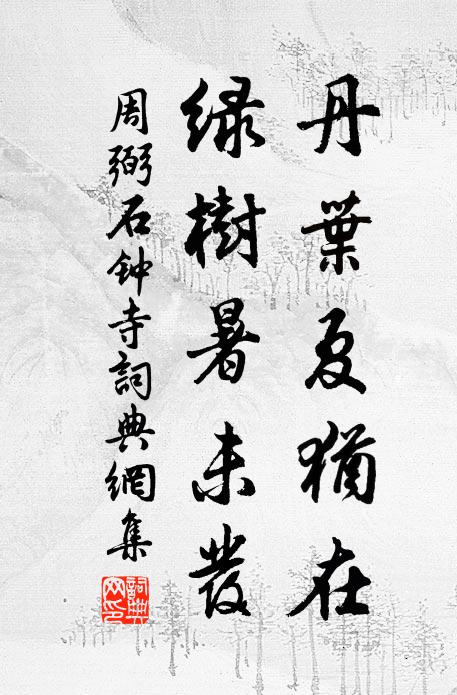 丹葉夏猶在
綠樹暑未發
周弼石钟寺詞典網集